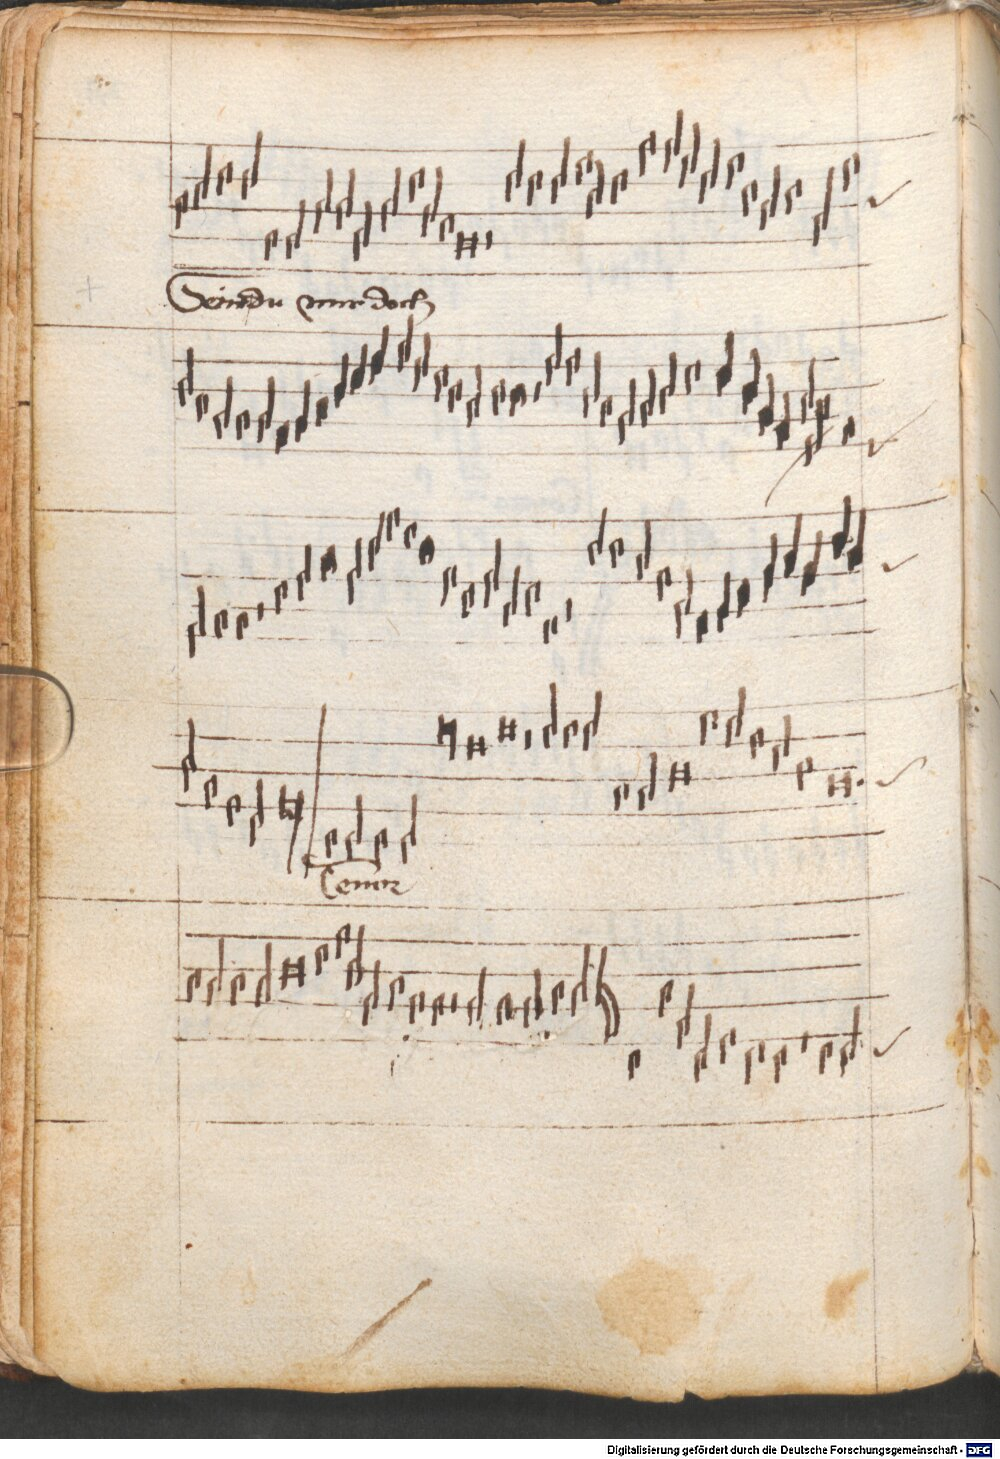 Seind du mir doch
Tenor
Digitalisierung gefördert durch die Deutsche Forschungsgemeinschaft - DFG